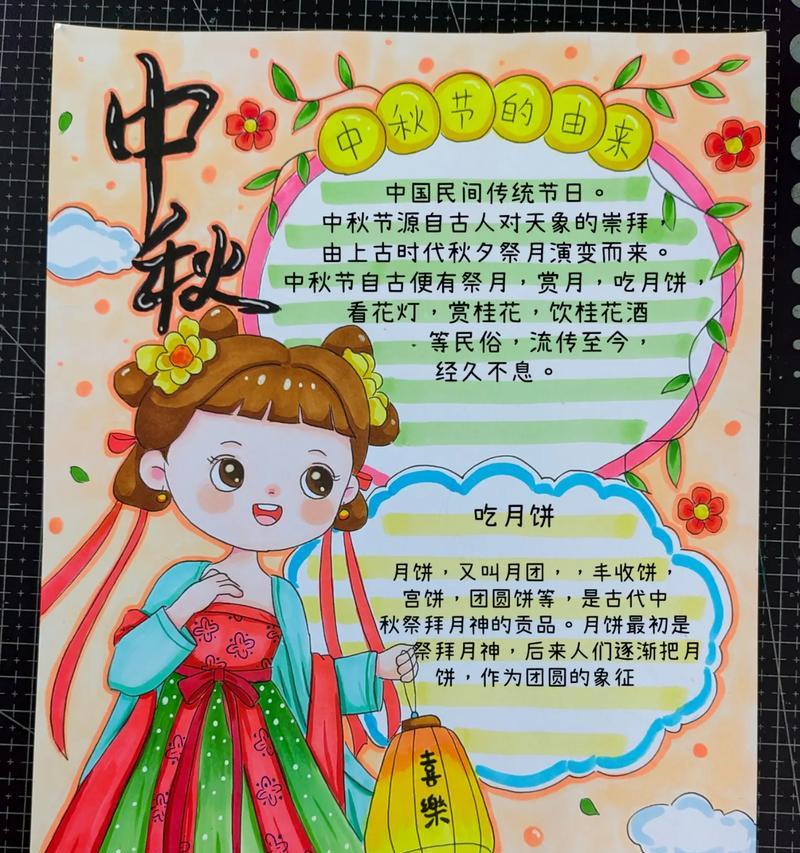 中秋
中秋节的由来
中国民间传统节日。
中秋节源自古人对天象的崇拜，
由上古时代秋夕祭月演变而来。
中秋节自古便有祭月，赏月，吃月饼，
看花灯，赏桂花，饮桂花酒
等民俗，流传至今，
经久不息。
吃月饼
月饼，又叫月团，，丰收饼，
宫饼，团圆饼等，是古代中
秋祭拜月神的贡品。月饼最初是
祭拜月神，后来人们逐渐把月
饼，作为团圆的象征
喜樂